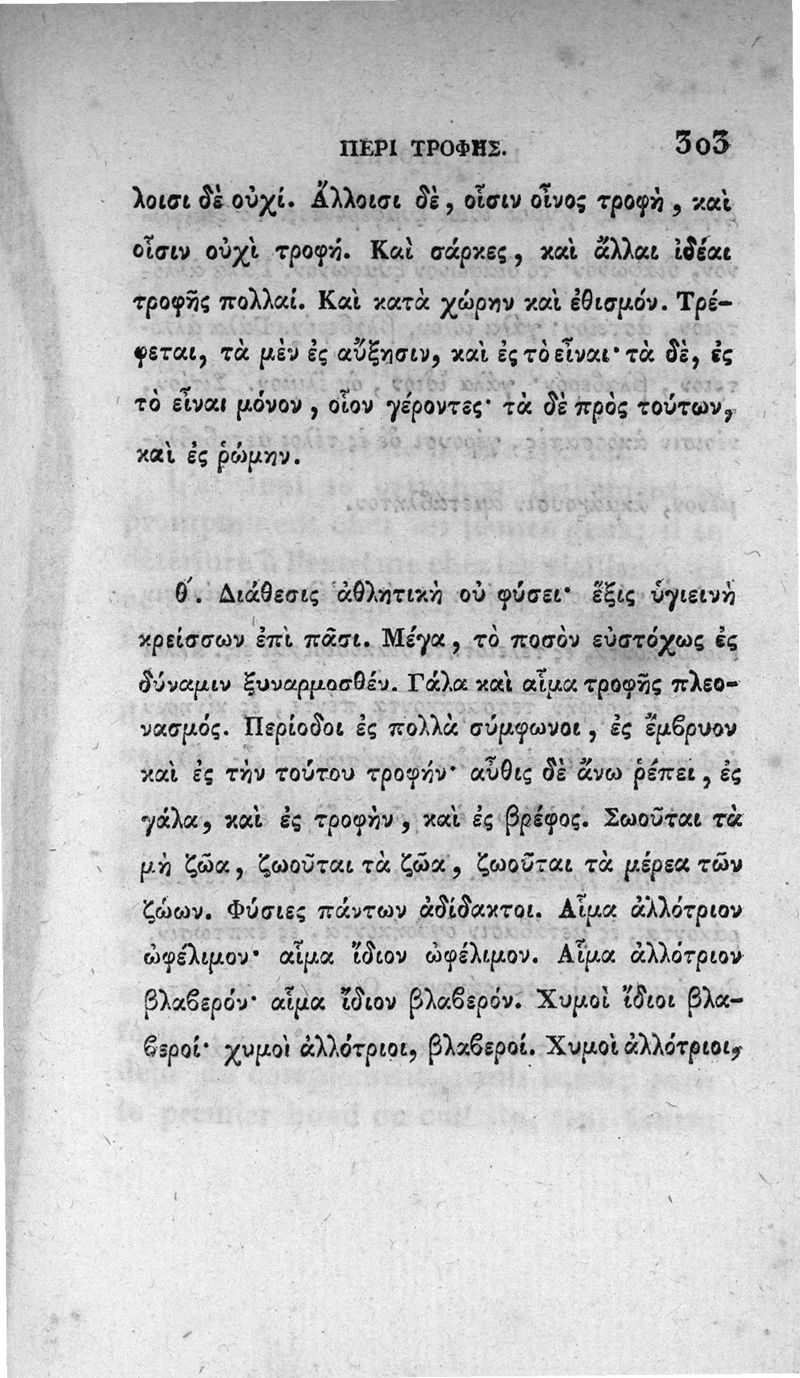 ΠΕΡΙ ΤΡΟΦΗΣ. 303
λοισι δὲ οὐχί. Ἄλλοισι δὲ, οἷσιν οἶνος τροφὴ, καὶ
οἷσιν οὐχὶ τροφή. Καὶ σάρκες, καὶ ἄλλαι ἰδέαι
τροφῆς πολλαί. Καὶ κατὰ χώρην καὶ ἐθισμόν. Τρέ-
φεται, τὰ μὲν ἐς αὔξησιν, καὶ ἐς τὸ εἶναι· τὰ δὲ, ἐς
τὸ εἶναι μόνον, οἷον γέροντες· τὰ δὲ πρὸς τούτων,
καὶ ἐς ῥώμην.
θ΄. Διάθεσις ἀθλητικὴ οὐ φύσει· ἕξις ὑγιεινὴ
κρείσσων ἐπὶ πᾶσι. Μέγα, τὸ ποσὸν εὐστόχως ἐς
δύναμιν ξυναρμοσθέν. Γάλα καὶ αἷμα τροφῆς πλεο-
νασμός. Περίοδοι ἐς πολλὰ σύμφωνοι, ἐς ἔμϐρυον
καὶ ἐς τὴν τούτου τροφήν· αὖθις δὲ ἄνω ῥέπει, ἐς
γάλα, καὶ ἐς τροφὴν, καὶ ἐς βρέφος. Σωοῦται τὰ
μὴ ζῶα, ζωοῦται τὰ ζῶα, ζωοῦται τὰ μέρεα τῶν
ζώων. Φύσιες πάντων ἀδίδακτοι. Αἷμα ἀλλότριον
ὠφέλιμον· αἷμα ἴδιον ὠφέλιμον. Αἷμα ἀλλότριον
βλαϐερόν· αἷμα ἴδιον βλαϐερόν. Χυμοὶ ἴδιοι βλα-
ϐεροί· χυμοὶ ἀλλότριοι, βλαϐεροί. Χυμοὶ ἀλλότριοι,